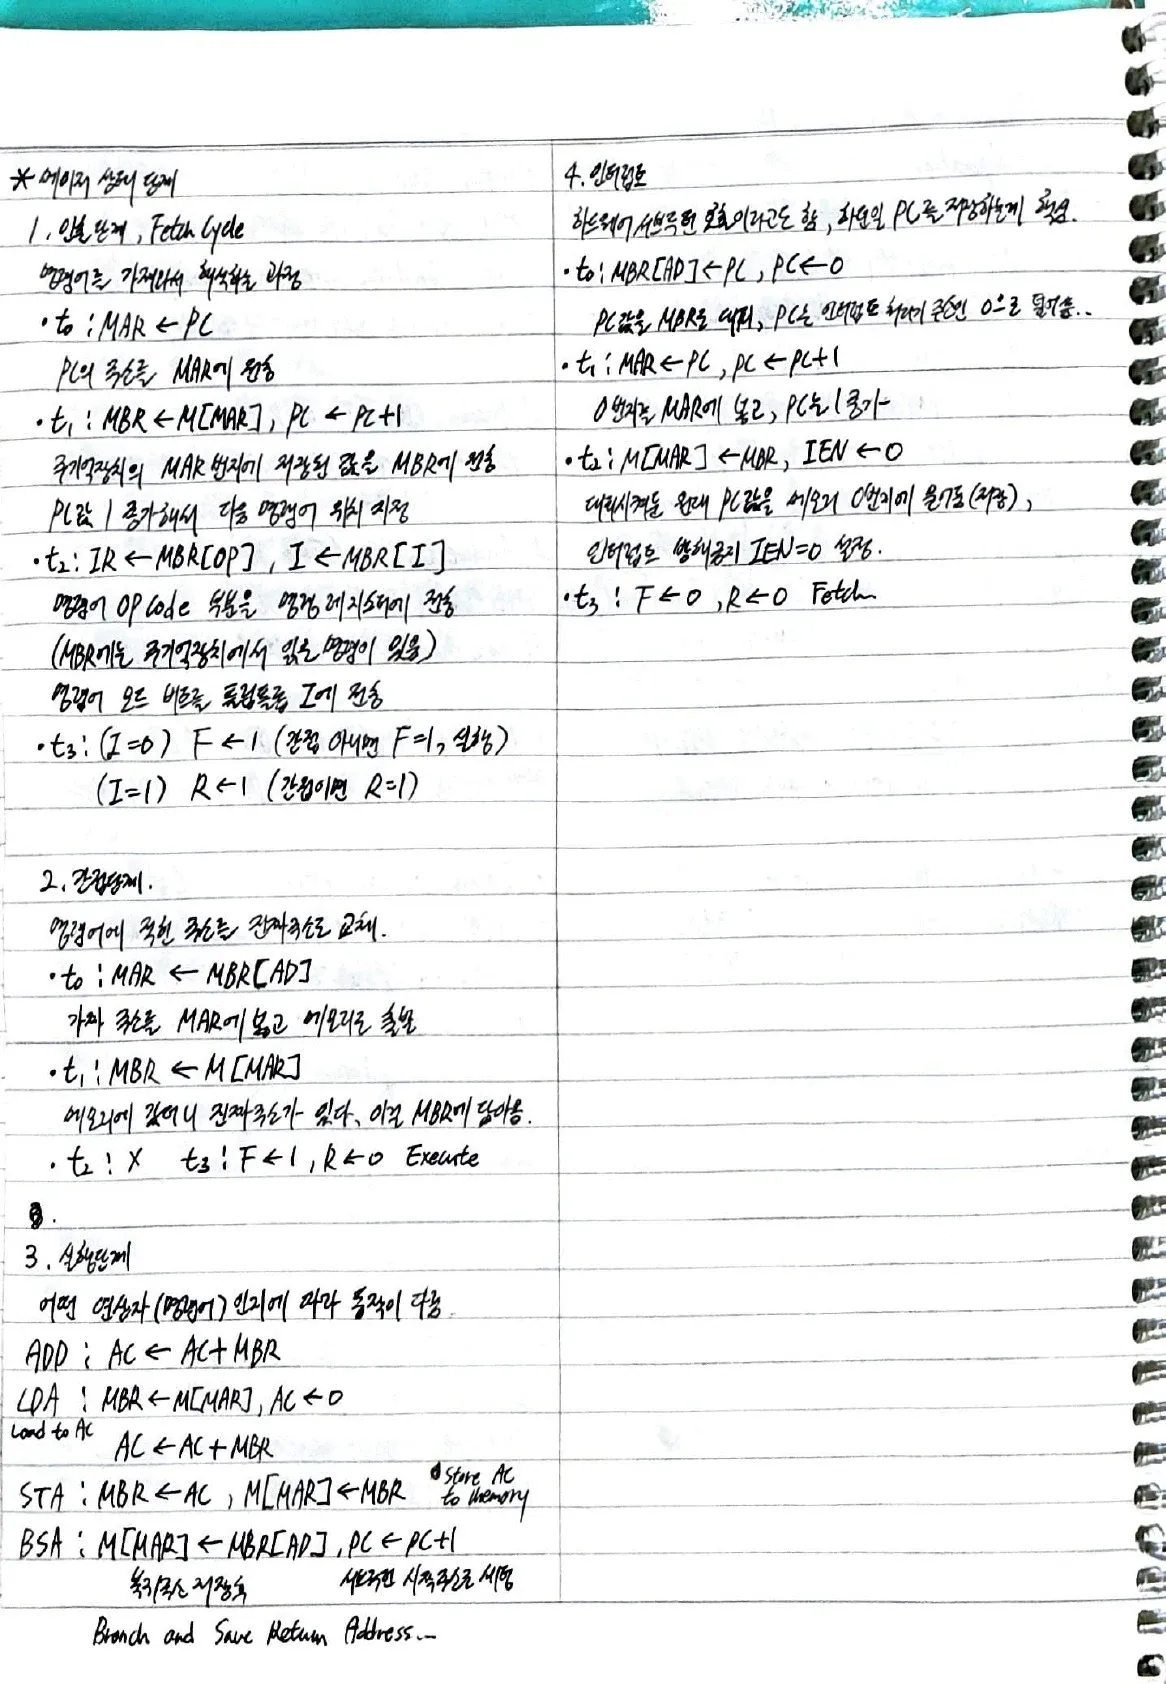 * 메이저 상태 단계
1. 인출단계, Fetch Cycle
명령어를 가져와서 해석하는 과정
• t₀ : MAR ← PC
PC의 주소를 MAR에 전송
• t₁ : MBR ← M[MAR], PC ← PC+1
주기억장치의 MAR 번지에 저장된 값을 MBR에 전송
PC값 1 증가해서 다음 명령어 위치 지정
• t₂ : IR ← MBR[OP], I ← MBR[I]
명령어 OP Code 부분을 명령 레지스터에 전송
(MBR에는 주기억장치에서 읽은 명령이 있음)
명령어 모드 비트를 플립플롭 I에 전송
• t₃ : (I=0) F ← 1 (간접 아니면 F=1, 실행)
(I=1) R ← 1 (간접이면 R=1)
2. 간접단계.
명령어에 적힌 주소를 진짜주소로 교체.
• t₀ : MAR ← MBR[AD]
가짜 주소를 MAR에 넣고 메모리로 출발
• t₁ : MBR ← M[MAR]
메모리에 갔더니 진짜주소가 있다, 이걸 MBR에 담아옴.
• t₂ : X t₃ : F ← 1, R ← 0 Execute
3. 실행단계
어떤 연산자(명령어)인지에 따라 동작이 다름
ADD : AC ← AC+MBR
LDA : MBR ← M[MAR], AC ← 0
Load to AC
AC ← AC+MBR
STA : MBR ← AC, M[MAR] ← MBR
Store AC
to Memory
BSA : M[MAR] ← MBR[AD], PC ← PC+1
복귀주소 저장 서브루틴 시작주소로 세팅
Branch and Save Return Address..
4. 인터럽트
하드웨어 서브루틴 호출이라고도 함, 하던일 PC를 저장하는게 핵심.
• t₀ : MBR[AD] ← PC, PC ← 0
PC값을 MBR로 대피, PC는 인터럽트 처리기 주소인 0으로 밀어줌..
• t₁ : MAR ← PC, PC ← PC+1
0번지를 MAR에 넣고, PC는 1증가
• t₂ : M[MAR] ← MBR, IEN ← 0
대피시켜둔 원래 PC값을 메모리 0번지에 물어둠(저장),
인터럽트 방해금지 IEN=0 설정.
• t₃ : F ← 0, R ← 0 Fetch